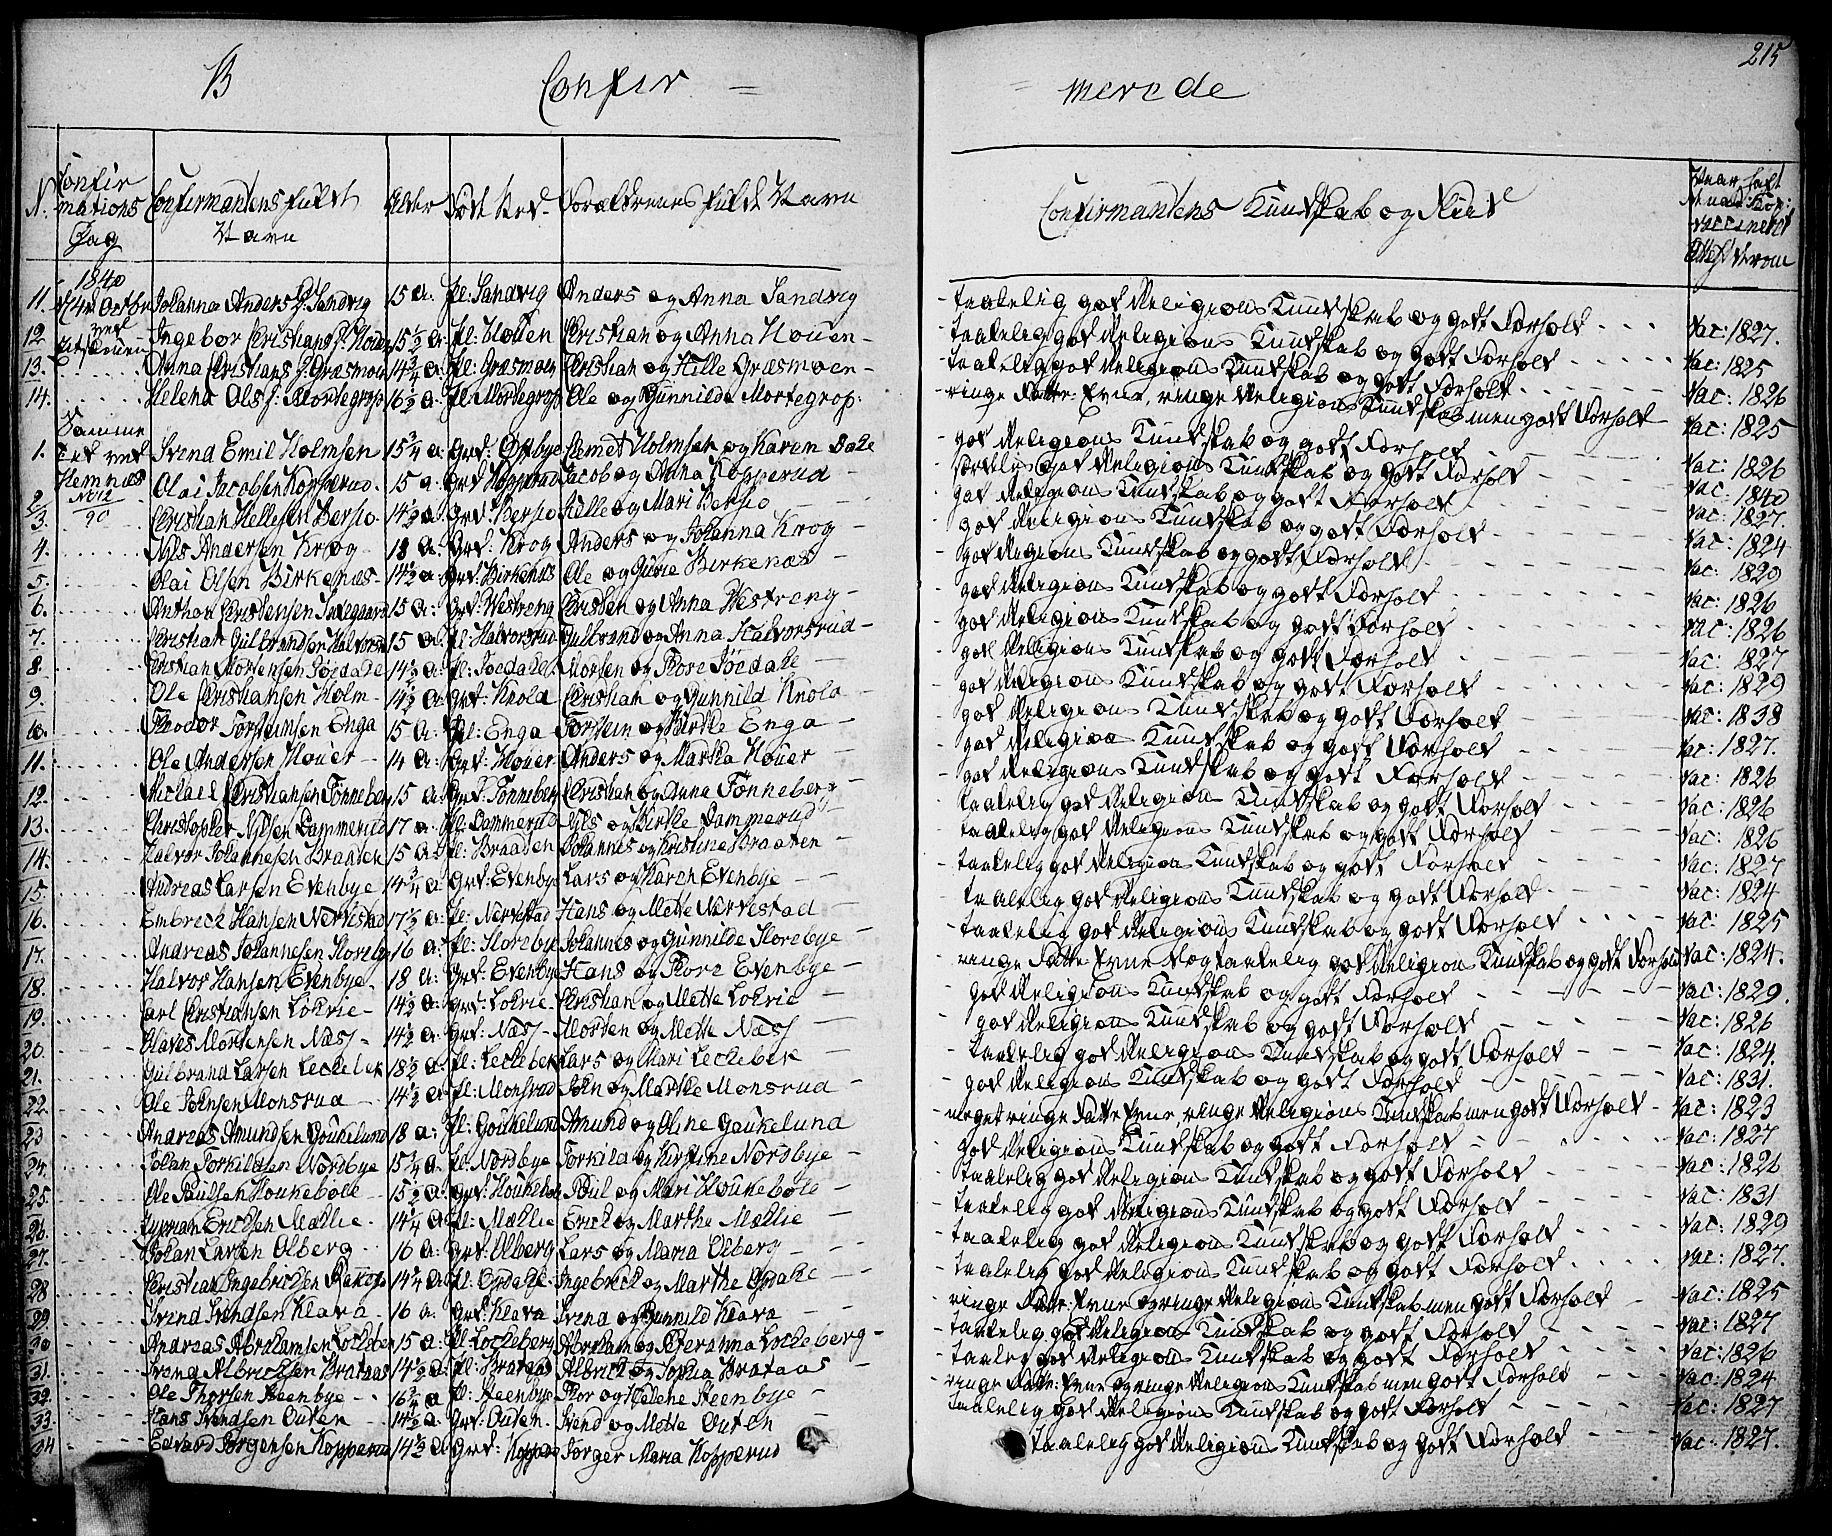 B Confir = = merede 215
N. Confirmations Dag Confirmantens fulde Navn Alder Fødested Forældrenes fulde Navn Confirmantens Kundskab og Flid
1840
11. Johanna Anders D. Sandvig 15 a: pl: Sandvig Anders og Anna Sandvig - taalelig god Religions Kundskab og godt Forhold - - - Vac: 1827.
12 Ingebor Christians D: Houen 15½ a: pl: Houen Christian og Anna Houen - taalelig god Religions Kundskab og godt Forhold - - - Vac: 1825
13. Anna Christians D. Græsmoen 14¾ a: pl: Græsmoen Christian og Hille Græsmoen - taalelig god Religions Kundskab og godt Forhold - - - Vac: 1826
14. Helena Ols D: Mortegrop 16½ a: pl: Mortegrop Ole og Gunnilde Mortegrop: - ringe Fatte: Evne, ringe Religions Kundskab men godt Forhold Vac: 1825
Samme Tid ved Hemnæs
1. Svend Emil Holmsen 15¾ a Grd: Clemet Holmsen og Karen - god Religions Kundskab og godt Forhold - Vac: 1826
2 Olai Jacobsen Kopperud. 15 a. Grd Kopperud Jacob og Anna Kopperud - god Religions Kundskab og godt Forhold - Vac: 1840
3. Christian Hellesen Bersio 14½ a Grd: Bersio Hille og Mari Bersio - god Religions Kundskab og godt Forhold - Vac: 1827.
4. Nils Andersen Krog 18 a: Grd: Krog Anders og Johanna Krog - god Religions Kundskab og godt Forhold - Vac: 1824
5. Olai Olsen Birkenæs - 14½ a Grd: Birkenæs Ole og Gurie Birkenæs - god Religions Kundskab og godt Forhold - Vac: 1829
6. Anthon Christensen 15 a: Grd: Westreng Christen og Anna Westreng - god Religions Kundskab og godt Forhold - Vac: 1826
7. Christian Gulbrandsen Halvorsrud 15 a: pl: Halvorsrud Gulbrand og Anna Halvorsrud - god Religions Kundskab og godt Forhold - Vac: 1826
8. Christian Mortensen 14½ a: pl: Morten og god Religions Kundskab og godt Forhold - Vac: 1827
9. Ole Christiansen Holm - 14½ a: Grd: Knold Christian og Gunnild Knold - god Religions Kundskab og godt Forhold - Vac: 1829
10. Theodor Torsteinsen Enga 15 a: pl: Enga Torstein og Kirstie Enga - god Religions Kundskab og godt Forhold - Vac: 1838
11. Ole Andersen Houer - 14 a: Grd: Houer Anders og Martha Houer - god Religions Kundskab og godt Forhold - Vac: 1827.
12. Michael Christiansen Tønneberg 15 a: Grd: Tønneberg Christian og Anna Tønneberg - god Religions Kundskab og godt Forhold - Vac: 1826
13. Christopher Nilsen Dammerud 17 a: pl: Dammerud Nils og Kirstie Dammerud - taalelig god Religions Kundskab og godt Forhold - Vac: 1826
14. Halvor Johannesen Braaten 15 a: pl: Braaten Johannes og Kristine Braaten - taalelig god Religions Kundskab og godt Forhold - Vac: 1826
15. Andreas Larsen Evenbye 14¾ a: Grd: Evenbye Lars og Karen Evenbye - taalelig god Religions Kundskab og godt Forhold - Vac: 1827
16. Embreck Hansen Nærkestad 17½ a: pl: Nærkestad Hans og Mette Nærkestad - taalelig god Religions Kundskab og godt Forhold - Vac: 1824
17. Andreas Johannesen Storebye 16 a: pl: Storebye Johannes og Gunnilde Storebye - taalelig god Religions Kundskab og godt Forhold - Vac: 1825
18. Halvor Hansen Evenbye. 18 a: Grd: Evenbye Hans og Evenbye - ringe Fatte: Evne og taalelig god Religions Kundskab og godt Forhold Vac: 1824.
19. Carl Christiansen Lokrie - 14½ a: Grd: Lokrie Christian og Mette Lokrie - god Religions Kundskab og godt Forhold - Vac: 1829.
20. Olaves Mortensen Næss - 14½ a: Grd: Næss - Morten og Mette Næss - god Religions Kundskab og godt Forhold - Vac: 1826
21. Gulbrand Larsen Leckebek 18½ a: pl: Leckebek Lars og Mari Leckebek - taalelig god Religions Kundskab og godt Forhold - Vac: 1824.
22. Ole Johnsen Monsrud - 14½ a: pl: Monsrud John og Marthe Monsrud - god Religions Kundskab og godt Forhold - Vac: 1831.
23 Andreas Amundsen Goukelund 18 a: pl: Goukelund Amund og Oline Goukelund - meget ringe Fatte Evne, ringe Religions Kundskab men godt Forhold - Vac: 1823
24. Johan Torkildsen Nordbye 15¾ a: pl: Nordbye Torkild og Kirstine Nordbye - god Religions Kundskab og godt Forhold - Vac: 1827
25. Ole Paulsen Houkebøle - 15½ a: Grd: Houkebøle Poul og Mari Houkebøle - taalelig god Religions Kundskab og godt Forhold - Vac: 1826
26. Erichsen Mællie - 14¼ a pl: Mællie Erich og Marthe Mællie - taalelig god Religions Kundskab og godt Forhold - Vac: 1831
27. Johan Larsen Olberg 16 a: Grd: Olberg Lars og Maria Olberg - taalelig god Religions Kundskab og godt Forhold - Vac: 1829
28 Christian Engebrichsen 14¼ a pl: Opdahle Ingebrick og Marthe Opdahle - taalelig god Religions Kundskab og godt Forhold - Vac: 1827.
29 Svend Svendsen Klava - 16 a. Grd: Klava Svend og Gunnild Klava - ringe Fatte: Evne og ringe Religions Kundskab men godt Forhold - Vac: 1825
30 Andreas Abrahamsen Lockeberg 15 a: pl: Lockeberg Abraham og Lockeberg - taalelig god Religions Kundskab og godt Forhold - Vac: 1827
31. Svend Albrichsen Brataas 14½ a: pl: Brataas Albrick og Sophia Brataas - taalelig god Religions Kundskab og godt Forhold - Vac: 1826
32. Ole Thorsen Steenbye - 16¾ a pl: Steenbye Thor og Helene Steenbye - ringe Fatte: Evne og ringe Religions Kundskab men godt Forhold - Vac: 1824
33. Hans Svendsen Outen - 14½ a: Grd: Outen - Svend og Mette Outen - taalelig god Religions Kundskab og godt Forhold - Vac: 1827
34 Edvard Jørgensen Kopperud 14½ a: Grd: Kopperud Jørger Maria Kopperud taalelig god Religions Kundskab og godt Forhold - Vac: 1827.